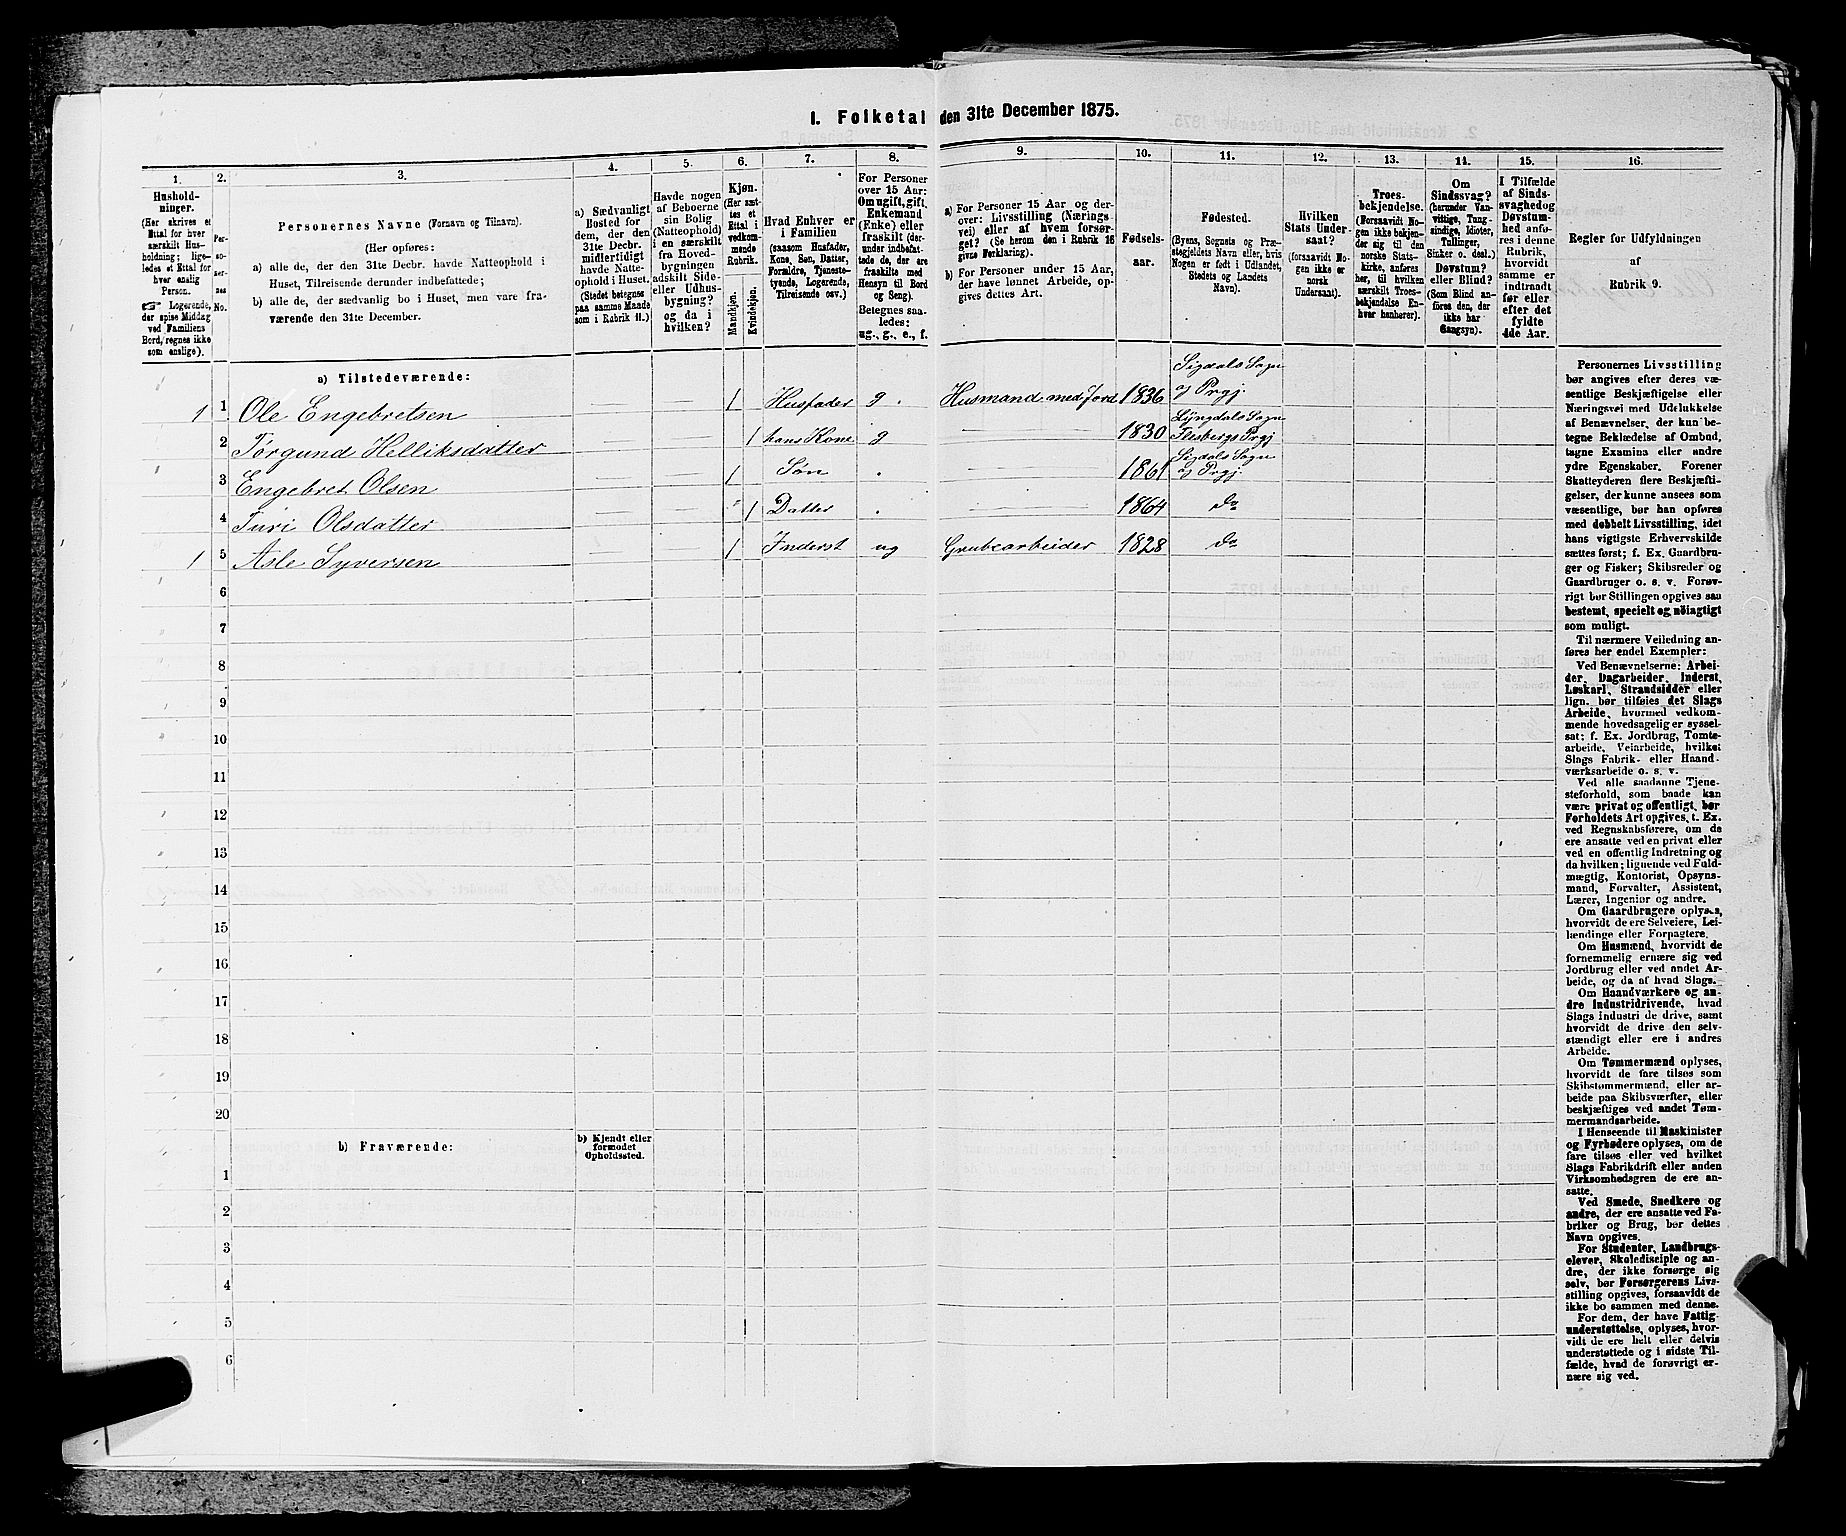 I. Folketal den 31te December 1875.
1.
2.
3.
4.
5.
6.
7.
8.
9.
10.
11.
12.
13.
14.
15.
16.
Hushold-
ninger.
(Her skrives et
Ettal for hver
særskilt Hus-
holdning; lige-
ledes et Ettal for
hver enslig
Person.
☞ Logerende,
der spise Middag
ved Familiens
Bord, regnes ikke
som enslige).
Per-
so-
ner-
nes
No.
Personernes Navne (Fornavn og Tilnavn).
(Her opføres:
a) alle de, der den 31te Decbr. havde Natteophold i
Huset, Tilreisende derunder indbefattede;
b) alle de, der sædvanlig bo i Huset, men vare fra-
værende den 31te December.
a) Sædvanligt
Bosted for
dem, der den
31te Decbr.
midlertidigt
havde Natte-
ophold i Huset.
(Stedet betegnes
paa samme Maade
som i Rubrik 11.)
Havde nogen
af Beboerne
sin Bolig
(Natteophold)
i en særskilt
fra Hoved-
bygningen
adskilt Side-
eller Udhus-
bygning?
og da i
hvilken?
Kjøn.
(Her sæt-
tes et
Ettal i
vedkom-
mende
Rubrik.
Mandkjøn.
Kvindekjøn.
Hvad Enhver er
i Familien
(saasom Husfader,
Kone, Søn, Datter,
Forældre, Tjeneste-
tyende, Logerende,
Tilreisende osv.)
For Personer
over 15 Aar:
Om ugift, gift,
Enkemand
(Enke) eller
fraskilt (der-
under indbefat-
tede de, der ere
fraskilte med
Hensyn til Bord
og Seng).
Betegnes saa-
ledes:
ug., g., e., f.
a) For Personer 15 Aar og der-
over: Livsstilling (Nærings-
vei) eller af hvem forsør-
get? (Se herom den i Rubrik 16
givne Forklaring).
b) For Personer under 15 Aar,
der have lønnet Arbeide, op-
gives dettes Art.
Fødsels-
aar.
Fødested.
(Byens, Sognets og Præ-
stegjeldets Navn eller, hvis
Nogen er født i Udlandet,
Stedets og Landets
Navn).
Hvilken
Stats Under-
saat?
(forsaavidt No-
gen ikke er
norsk
Undersaat).
Troes-
bekjendelse.
(Forsaavidt No-
gen ikke bekjen-
der sig til den
norske Stats-
kirke, anføres
her, til hvilken
særskilt Troes-
bekjendelse En-
hver henhører).
Om
Sindssvag?
(herunder Van-
vittige, Tung-
sindige, Idioter,
Tullinger,
Sinker o. desl.)
Døvstum?
eller Blind?
(Som Blind an-
føres den, der
ikke har
Gangsyn).
I Tilfælde
af Sinds-
svaghed og
Døvstum-
hed anfø-
res i denne
Rubrik,
hvorvidt
samme er
indtraadt
før eller
efter det
fyldte
4de Aar.
Regler for Udfyldningen
af
Rubrik 9.
a) Tilstedeværende:
1 1 Ole Engebretsen 1 Husfader g. Husmand med Jord 1836 Sigdals Sogn
og Prgj.
2 Torgund Helliksdatter 1 hans Kone g 1830 Lyngdals Sogn
Flesbergs Prgj
3 Engebret Olsen 1 Søn 1861 Sigdals Sogn
og Prgj.
4 Turi Olsdatter 1 Datter 1864 Do
1 5 Asle Syversen 1 Inderst ug Grubearbeider 1828 Do
6
7
8
9
10
11
12
13
14
15
16
17
18
19
20
b) Fraværende:
b) Kjendt eller
formodet
Opholdssted.
1
2
3
4
5
6
Personernes Livsstilling
bør angives efter deres væ-
sentlige Beskjæftigelse eller
Næringsvei med Udelukkelse
af Benævnelser, der kun be-
tegne Beklædelse af Ombud,
tagne Examina eller andre
ydre Egenskaber. Forener
Skatteyderen flere Beskjæfti-
gelser, der kunne ansees som
væsentlige, bør han opføres
med dobbelt Livsstilling, idet
hans vigtigste Erhvervskilde
sættes først; f. Ex. Gaardbru-
ger og Fisker; Skibsreder og
Gaardbruger o. s. v. Forøv-
rigt bør Stillingen opgives saa
bestemt, specielt og nøiagtigt
som muligt.
Til nærmere Veiledning an-
føres her endel Exempler:
Ved Benævnelserne: Arbei-
der, Dagarbeider, Inderst,
Løskarl, Strandsidder eller
lign. bør tilføies det Slags
Arbeide, hvormed vedkom-
mende hovedsagelig er syssel-
sat; f. Ex. Jordbrug, Tomte-
arbeide, Veiarbeide, hvilket
Slags Fabrik- eller Haand-
værksarbeide o. s. v.
Ved alle saadanne Tjene-
steforhold, som baade kan
være privat og offentligt, bør
Forholdets Art opgives, t. Ex.
ved Regnskabsførere, om de
ere ansatte ved en privat eller
ved en offentlig Indretning og
da hvilken; lignende ved Fuld-
mægtig, Kontorist, Opsyns-
mand, Forvalter, Assistent,
Lærer, Ingeniør og andre.
Om Gaardbrugere oplyses,
hvorvidt de ere Selveiere, Lei-
lændinge eller Forpagtere.
Om Husmænd, hvorvidt de
fornemmelig ernære sig ved
Jordbrug eller ved andet Ar-
beide, og da af hvad Slags.
Om Haandværkere og an-
dre Industridrivende, hvad
Slags Industri de drive, samt
hvorvidt de drive den selv-
stændigt eller ere i andres
Arbeide.
Om Tømmermænd oplyses,
hvorvidt de fare tilsøs som
Skibstømmermænd, eller ar-
beide paa Skibsværfter, eller
beskjæftiges ved andet Tøm-
mermandsarbeide.
I Henseende til Maskinister
og Fyrbødere oplyses, om de
fare tilsøs eller ved hvilket
Slags Fabrikdrift eller anden
Virksomhedsgren de ere an-
satte.
Ved Smede, Snedkere og
andre, der ere ansatte ved Fa-
briker og Brug, bør dettes
Navn opgives.
For Studenter, Landbrugs-
elever, Skoledisciple og an-
dre, der ikke forsørge sig
selv, bør Forsørgerens Livs-
stilling opgives, forsaavidt de
ikke bo sammen med denne.
For dem, der have Fattig-
understøttelse, oplyses, hvor-
vidt de ere helt eller delvis
understøttede og i sidste Til-
fælde, hvad de forøvrigt er-
nære sig ved.